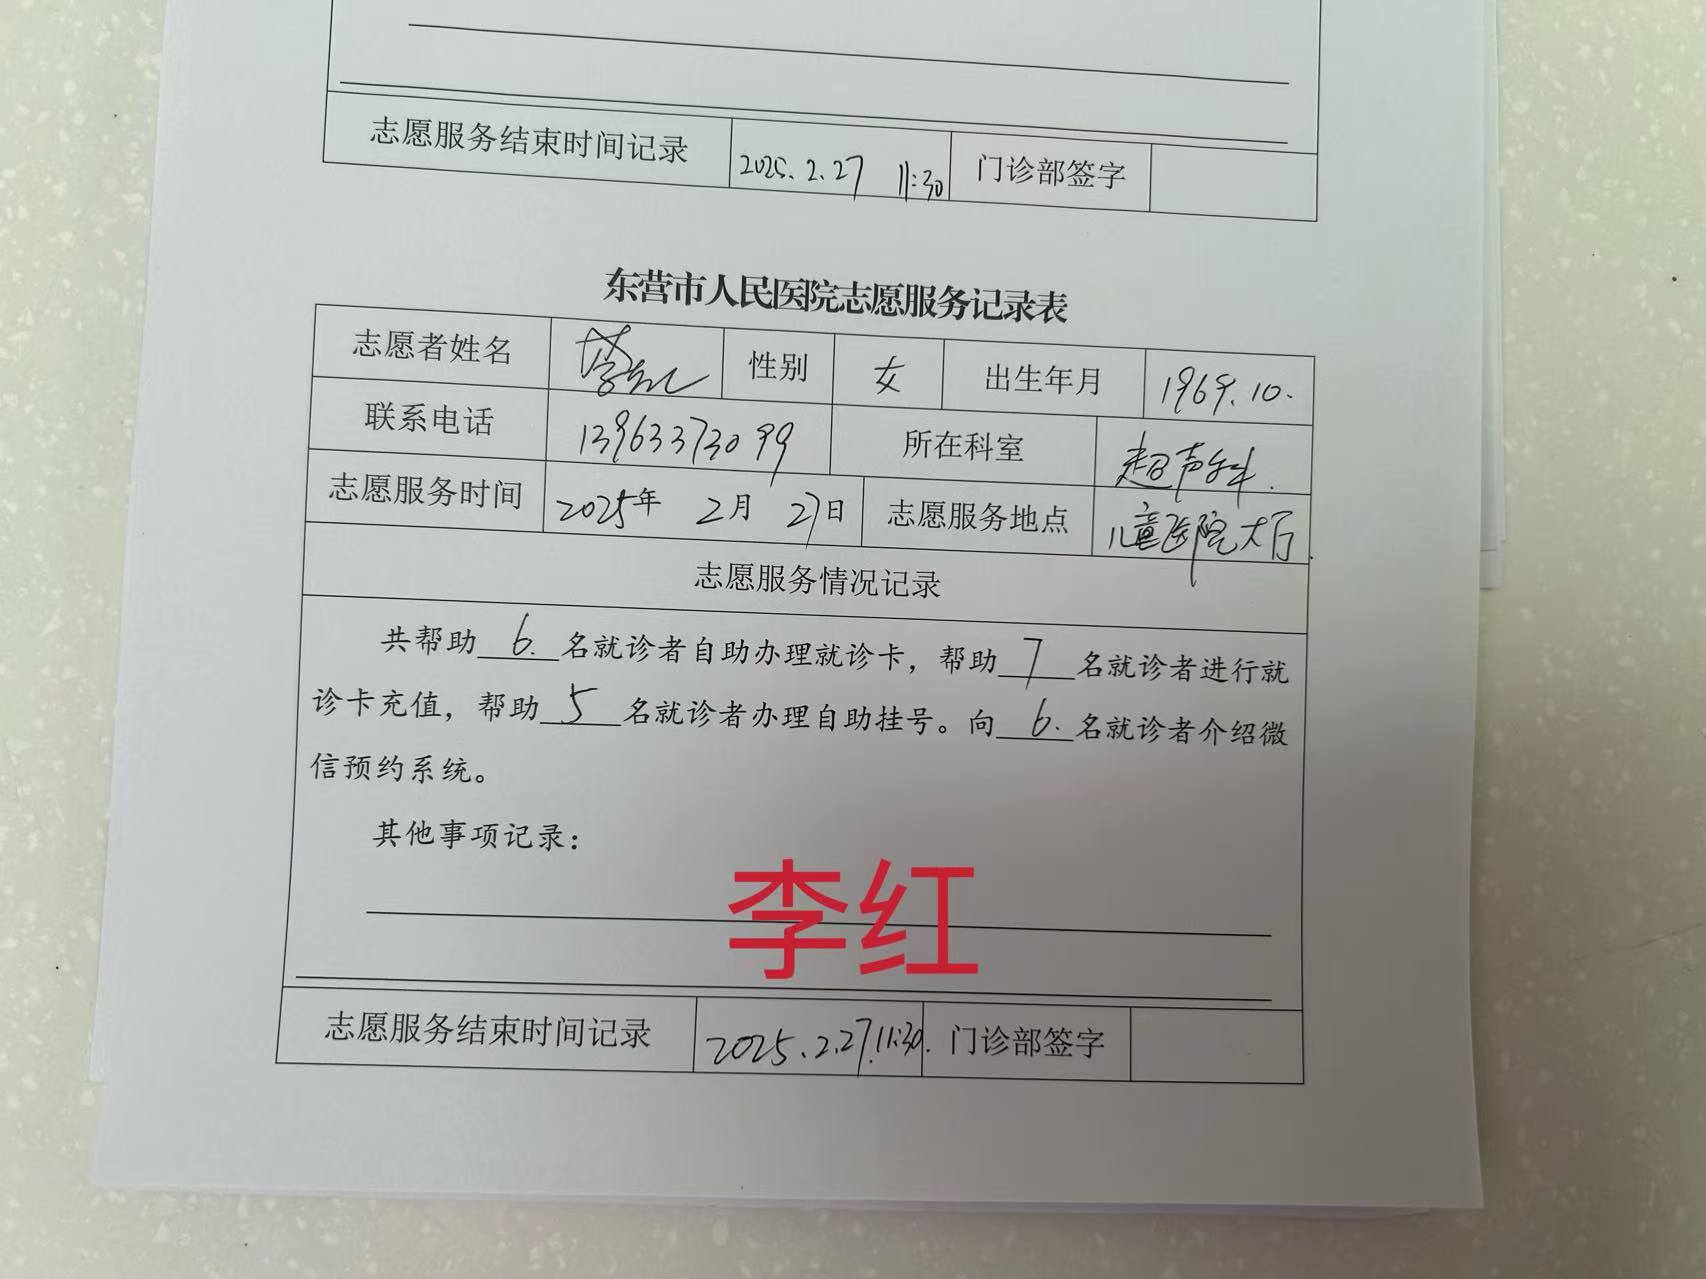 志愿服务结束时间记录 2025.2.27 11:30 门诊部签字
东营市人民医院志愿服务记录表
志愿者姓名 性别 女 出生年月 1969.10.
联系电话 13963373099 所在科室 超声科.
志愿服务时间 2025年 2月 27日 志愿服务地点 儿童医院大厅.
志愿服务情况记录
共帮助 6. 名就诊者自助办理就诊卡，帮助 7 名就诊者进行就
诊卡充值，帮助 5 名就诊者办理自助挂号。向 6. 名就诊者介绍微
信预约系统。
其他事项记录：
李红
志愿服务结束时间记录 2025.2.27.11:30. 门诊部签字